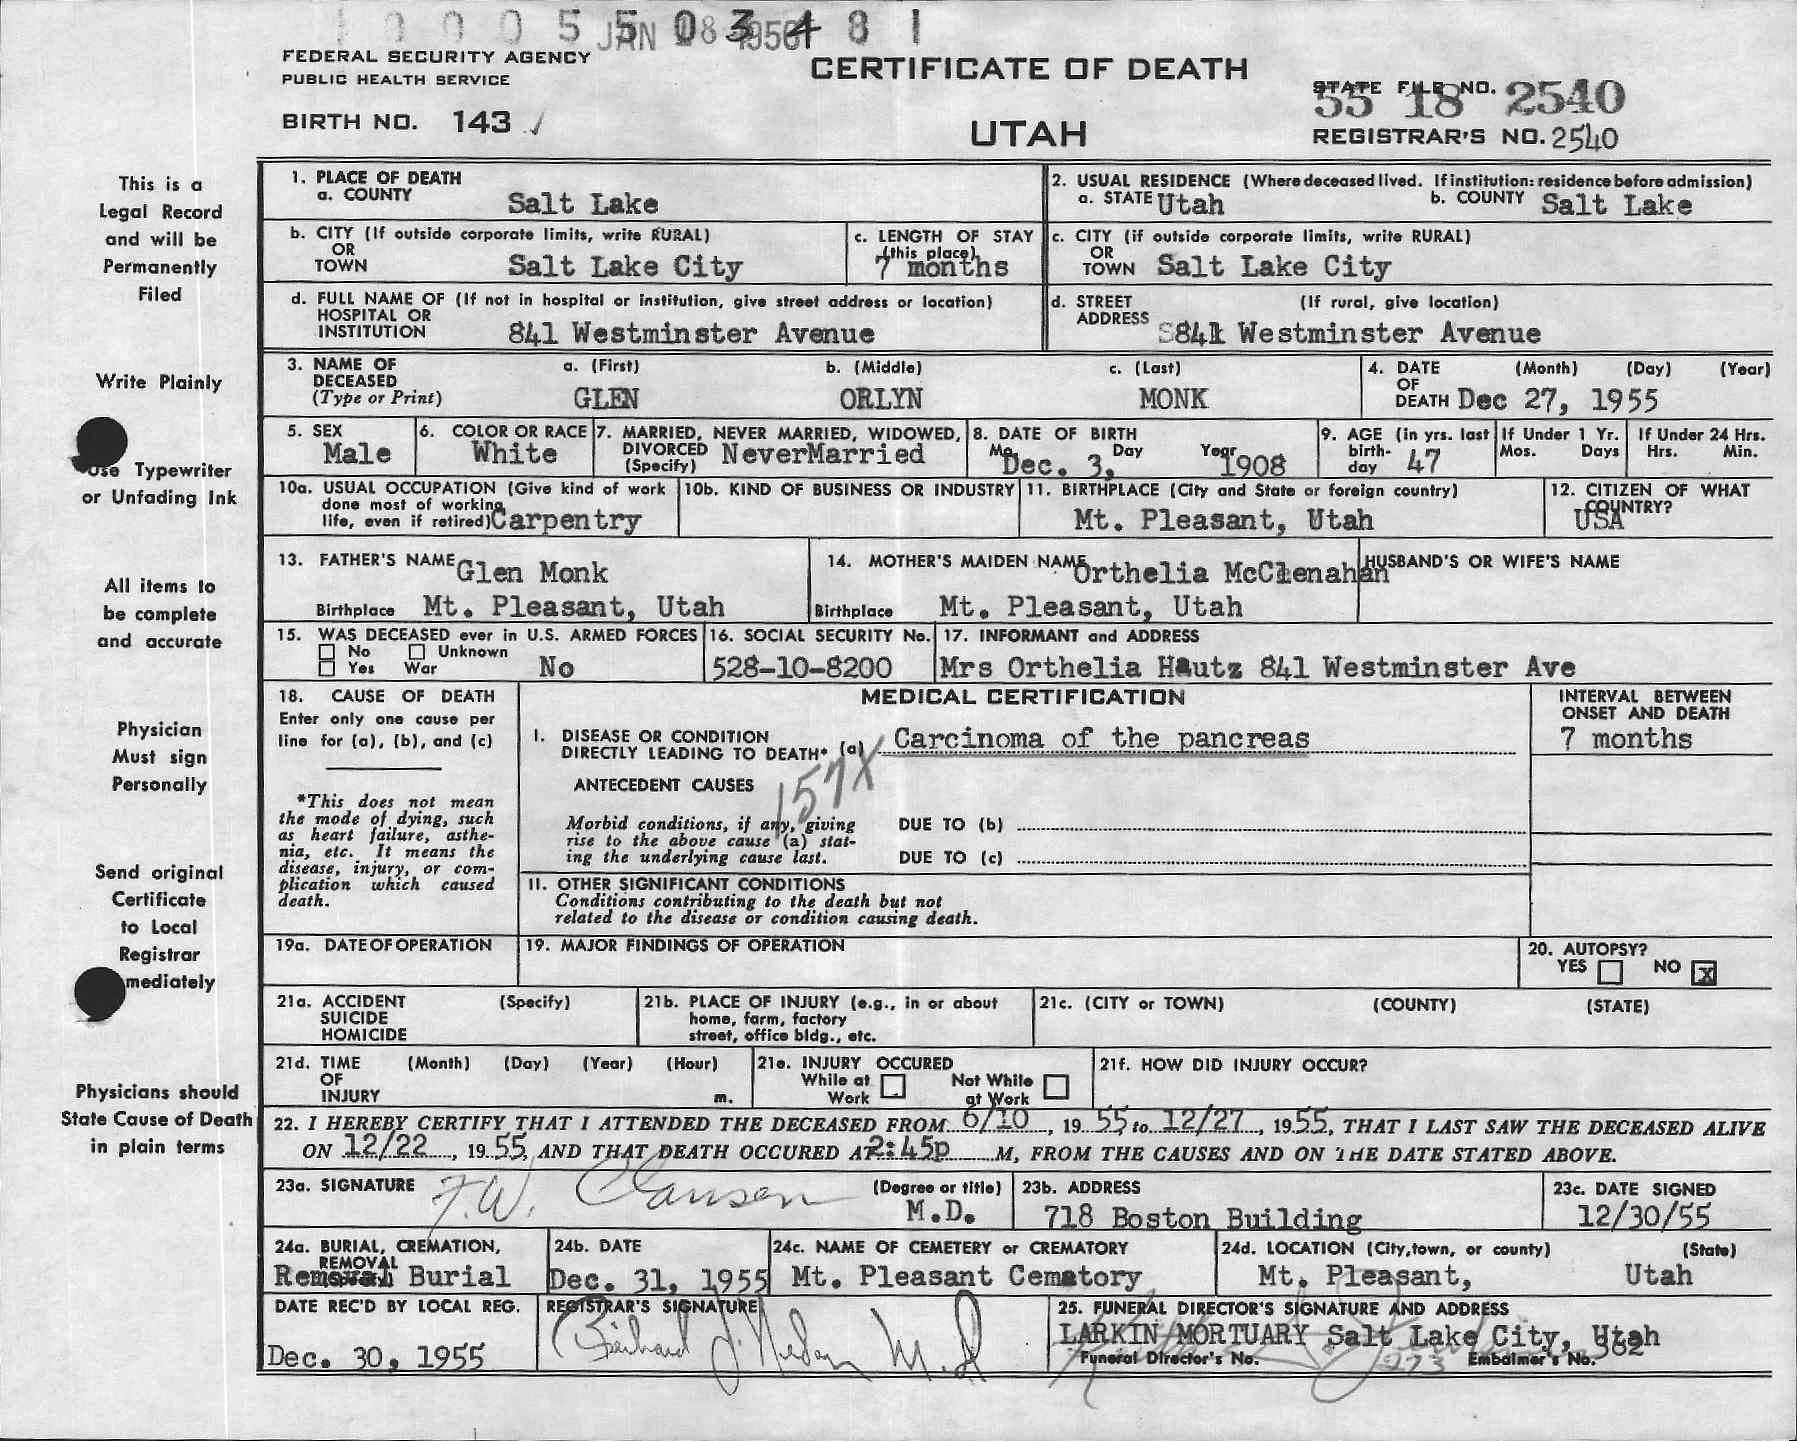 1 0 0 0 5 5 0 3 4 8 1
JAN 18 1956
FEDERAL SECURITY AGENCY
PUBLIC HEALTH SERVICE
CERTIFICATE OF DEATH
STATE FILE NO.
55 18 2540
BIRTH NO. 143 ✓
UTAH
REGISTRAR'S NO. 2540
This is a
Legal Record
and will be
Permanently
Filed
Write Plainly
Use Typewriter
or Unfading Ink
All items to
be complete
and accurate
Physician
Must sign
Personally
Send original
Certificate
to Local
Registrar
mediately
Physicians should
State Cause of Death
in plain terms
1. PLACE OF DEATH
a. COUNTY Salt Lake
2. USUAL RESIDENCE (Where deceased lived. If institution: residence before admission)
a. STATE Utah b. COUNTY Salt Lake
b. CITY (If outside corporate limits, write RURAL)
OR
TOWN Salt Lake City
c. LENGTH OF STAY
(this place)
7 months
c. CITY (if outside corporate limits, write RURAL)
OR
TOWN Salt Lake City
d. FULL NAME OF (If not in hospital or institution, give street address or location)
HOSPITAL OR
INSTITUTION 841 Westminster Avenue
d. STREET (If rural, give location)
ADDRESS 841 Westminster Avenue
3. NAME OF
DECEASED
(Type or Print)
a. (First) b. (Middle) c. (Last)
GLEN ORLYN MONK
4. DATE (Month) (Day) (Year)
OF
DEATH Dec 27, 1955
5. SEX
Male
6. COLOR OR RACE
White
7. MARRIED, NEVER MARRIED, WIDOWED,
DIVORCED NeverMarried
(Specify)
8. DATE OF BIRTH
Mo. Day Year
Dec. 3, 1908
9. AGE (in yrs. last
birth-
day 47
If Under 1 Yr.
Mos. Days
If Under 24 Hrs.
Hrs. Min.
10a. USUAL OCCUPATION (Give kind of work
done most of working
life, even if retired) Carpentry
10b. KIND OF BUSINESS OR INDUSTRY
11. BIRTHPLACE (City and State or foreign country)
Mt. Pleasant, Utah
12. CITIZEN OF WHAT
COUNTRY?
USA
13. FATHER'S NAME Glen Monk
Birthplace Mt. Pleasant, Utah
14. MOTHER'S MAIDEN NAME Orthelia McClenahan
Birthplace Mt. Pleasant, Utah
HUSBAND'S OR WIFE'S NAME
15. WAS DECEASED ever in U.S. ARMED FORCES
No Unknown
Yes War No
16. SOCIAL SECURITY No.
528-10-8200
17. INFORMANT and ADDRESS
Mrs Orthelia Hautz 841 Westminster Ave
18. CAUSE OF DEATH
Enter only one cause per
line for (a), (b), and (c)
*This does not mean
the mode of dying, such
as heart failure, asthe-
nia, etc. It means the
disease, injury, or com-
plication which caused
death.
MEDICAL CERTIFICATION
INTERVAL BETWEEN
ONSET AND DEATH
I. DISEASE OR CONDITION
DIRECTLY LEADING TO DEATH* (a) Carcinoma of the pancreas
7 months
157X
ANTECEDENT CAUSES
Morbid conditions, if any, giving
rise to the above cause (a) stat-
ing the underlying cause last.
DUE TO (b)
DUE TO (c)
II. OTHER SIGNIFICANT CONDITIONS
Conditions contributing to the death but not
related to the disease or condition causing death.
19a. DATE OF OPERATION
19. MAJOR FINDINGS OF OPERATION
20. AUTOPSY?
YES NO X
21a. ACCIDENT (Specify)
SUICIDE
HOMICIDE
21b. PLACE OF INJURY (e.g., in or about
home, farm, factory
street, office bldg., etc.
21c. (CITY or TOWN) (COUNTY) (STATE)
21d. TIME (Month) (Day) (Year) (Hour)
OF
INJURY m.
21e. INJURY OCCURED
While at Not While
Work at Work
21f. HOW DID INJURY OCCUR?
22. I HEREBY CERTIFY THAT I ATTENDED THE DECEASED FROM 6/10, 19 55 to 12/27, 19 55, THAT I LAST SAW THE DECEASED ALIVE
ON 12/22, 19 55, AND THAT DEATH OCCURED AT 2:45p M, FROM THE CAUSES AND ON THE DATE STATED ABOVE.
23a. SIGNATURE F.W. Clausen (Degree or title)
M.D.
23b. ADDRESS
718 Boston Building
23c. DATE SIGNED
12/30/55
24a. BURIAL, CREMATION,
REMOVAL
(Specify)
Removal Burial
24b. DATE
Dec. 31, 1955
24c. NAME OF CEMETERY or CREMATORY
Mt. Pleasant Cematory
24d. LOCATION (City, town, or county) (State)
Mt. Pleasant, Utah
DATE REC'D BY LOCAL REG.
Dec. 30, 1955
REGISTRAR'S SIGNATURE
25. FUNERAL DIRECTOR'S SIGNATURE AND ADDRESS
LARKIN MORTUARY Salt Lake City, Utah
Funeral Director's No. 273 Embalmer's No. 362